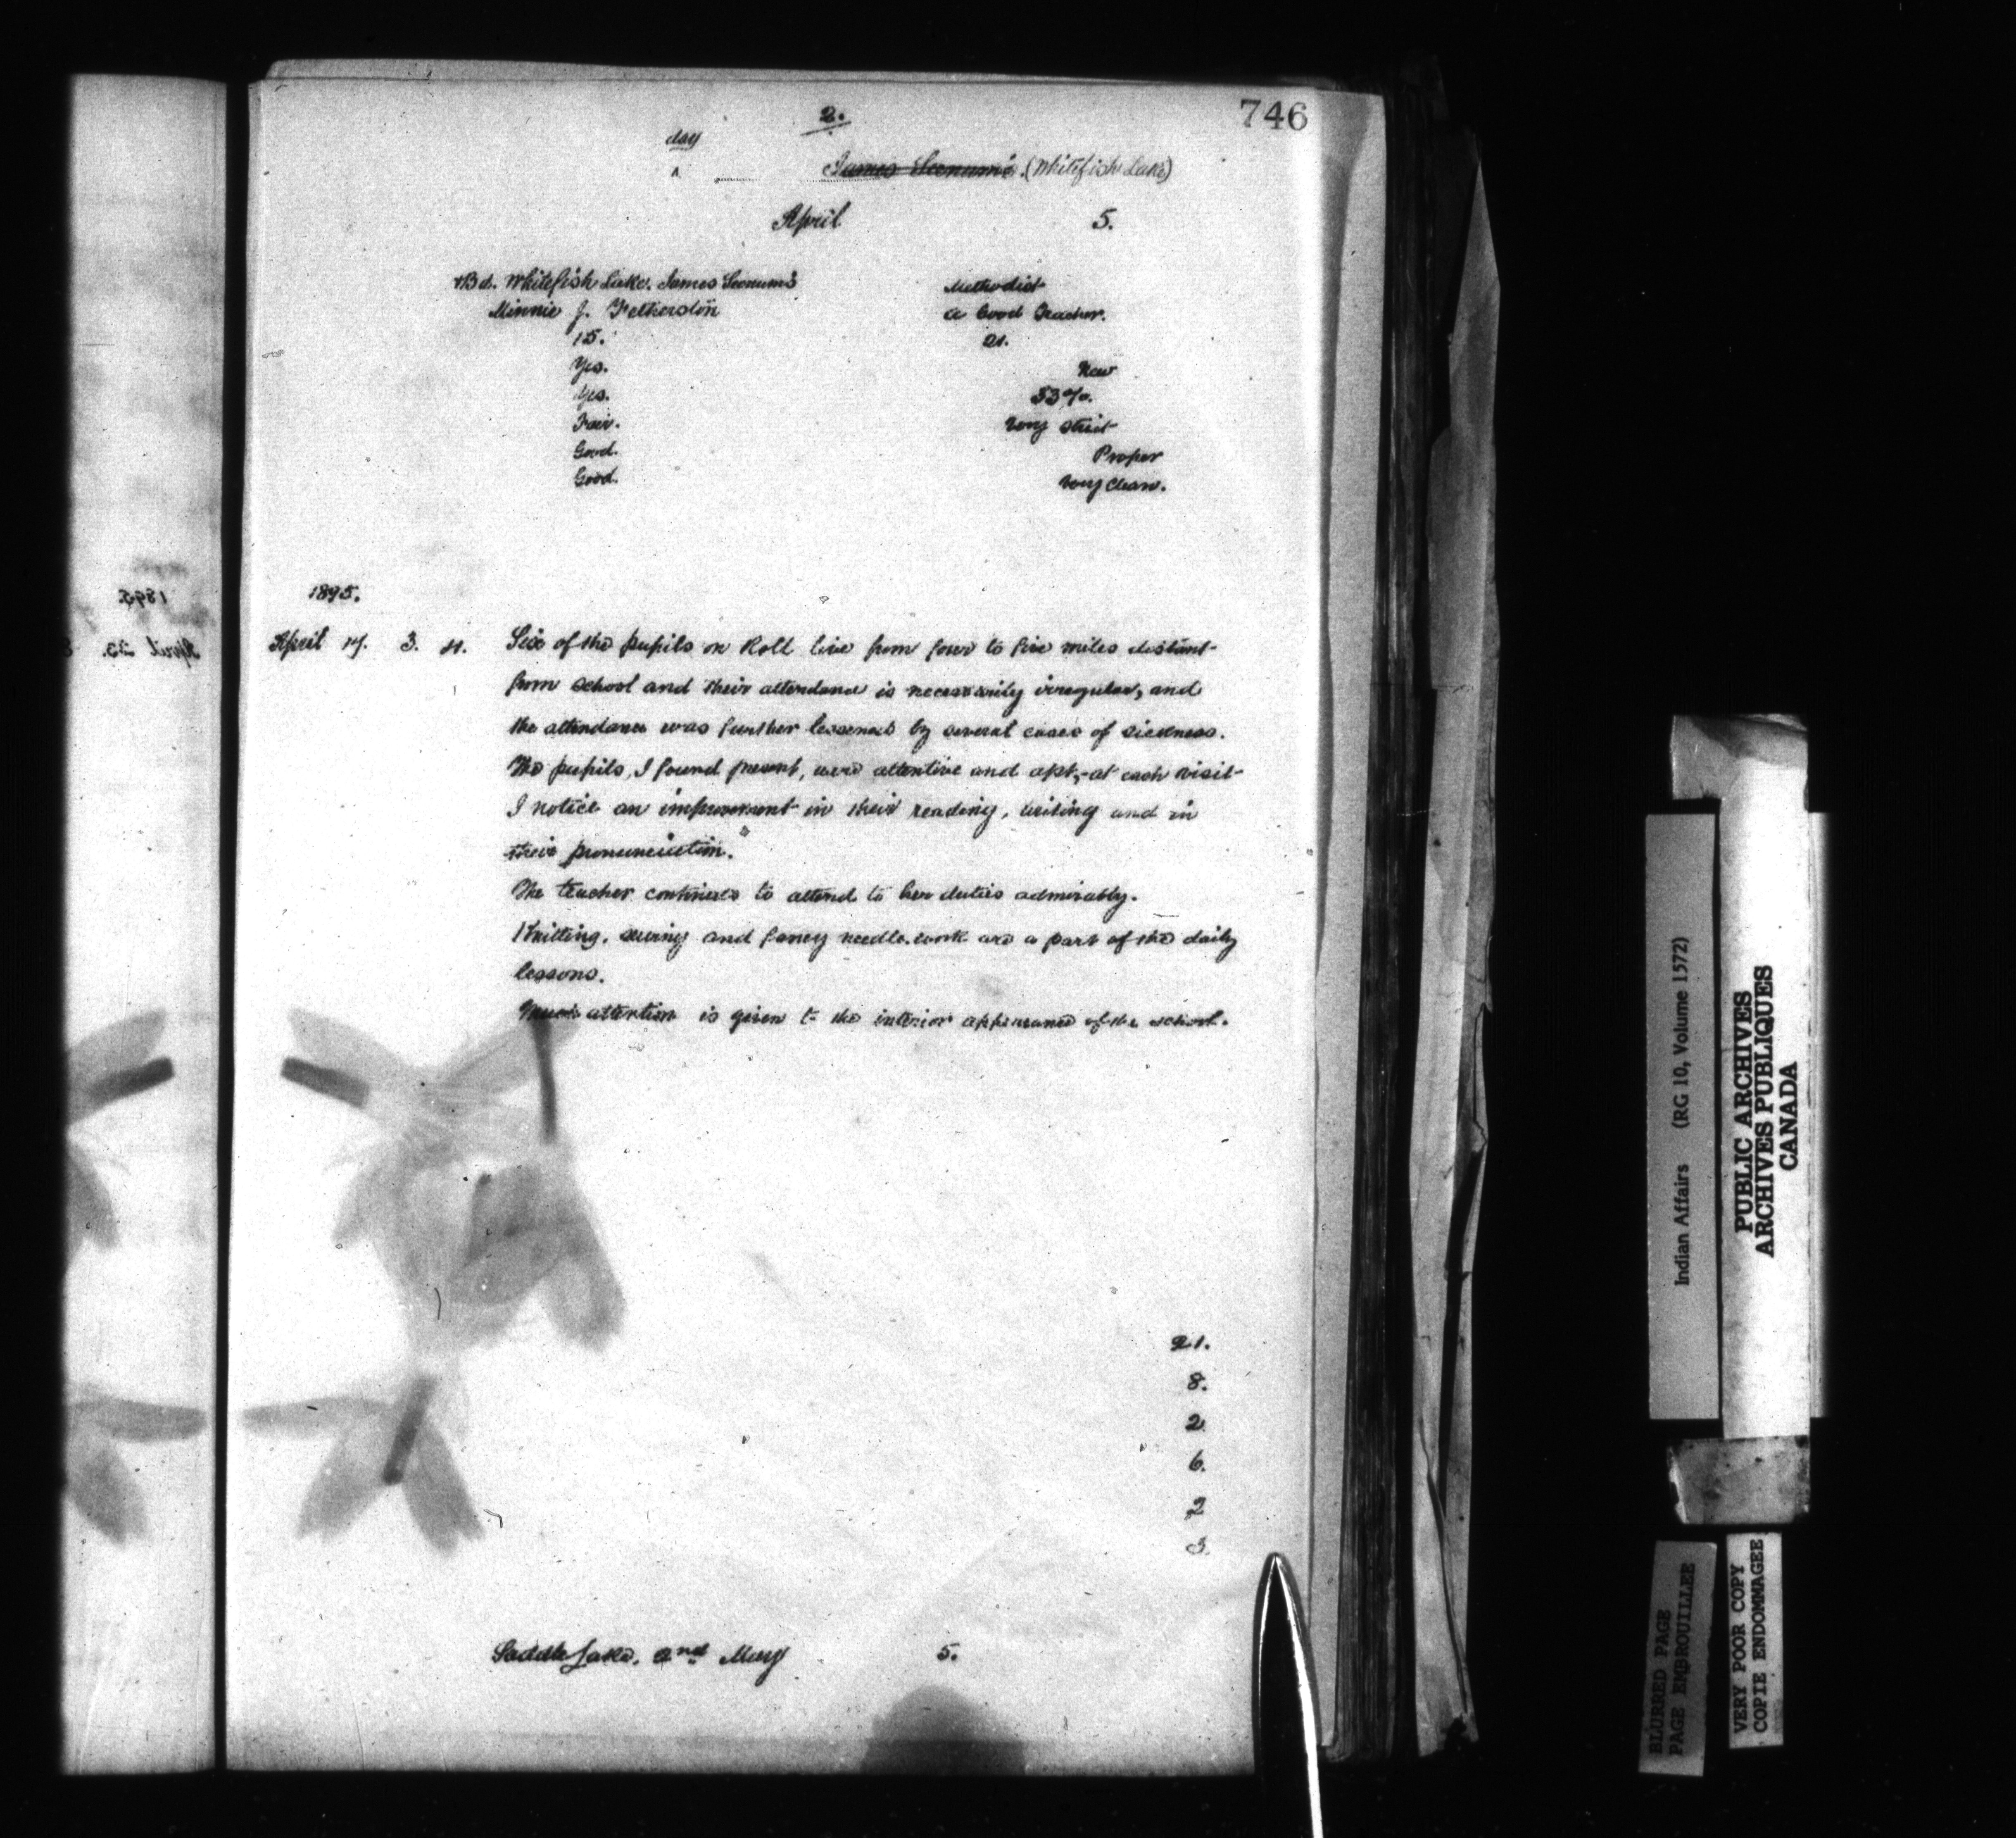 746
2.
day
^ James Seenum's. (Whitefish Lake)
April 5.
Bd. Whitefish Lake. James Seenum's Methodist
Minnie J. Fetherston a Good Teacher.
15. 21.
Yes. New
Yes. 53%.
Fair. Very strict
Good. Proper
Good. Very clean.
1895.
April 17. 3. 11. Six of the pupils on Roll live from four to five miles distant
from school and their attendance is necessarily irregular, and
the attendance was further lessened by several cases of sickness.
The pupils, I found present, were attentive and apt,-at each visit
I notice an improvement in their reading, writing and in
their pronunciation."
The teacher continues to attend to her duties admirably.
Knitting, sewing and fancy needle-work are a part of the daily
lessons.
Much attention is given to the interior appearance of the school.
21.
8.
2
6.
2
3.
Saddle Lake, 2nd May 5.
1895.
April 23.
Indian Affairs (RG 10, Volume 1572)
PUBLIC ARCHIVES
ARCHIVES PUBLIQUES
CANADA
BLURRED PAGE
PAGE EMBROUILLEE
VERY POOR COPY
COPIE ENDOMMAGEE